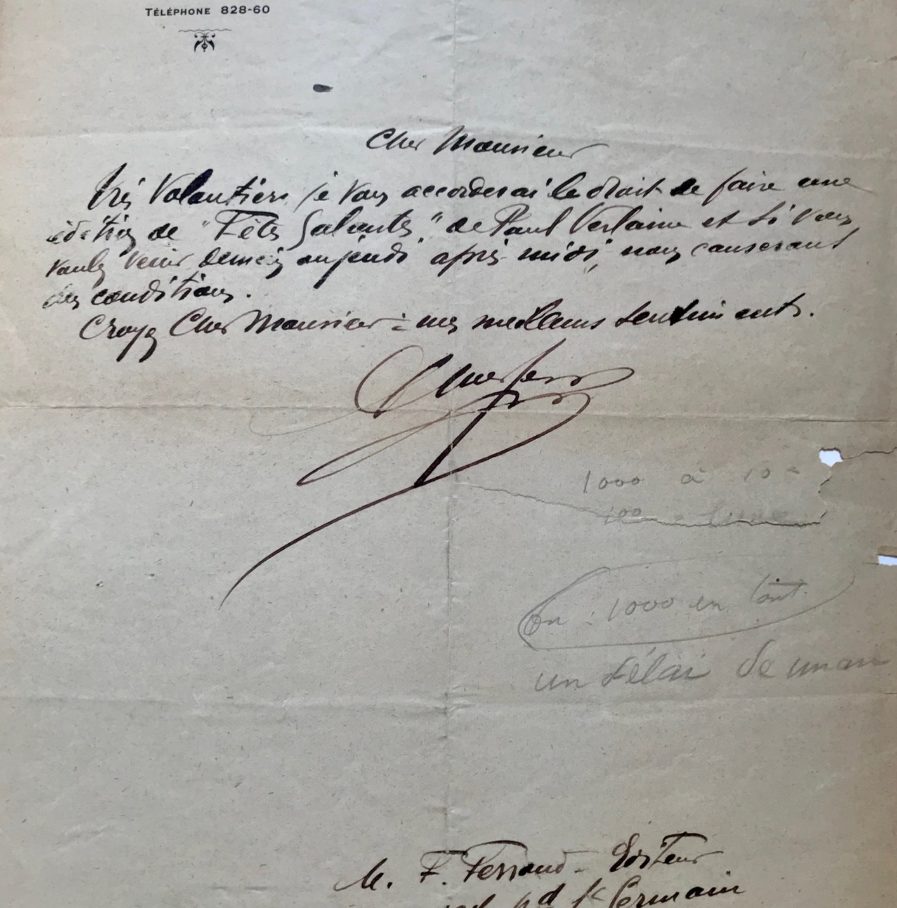 TÉLÉPHONE 828-60
Cher Monsieur
Très volontiers je vous accorderai le droit de faire une
édition de "Fêtes Galantes" de Paul Verlaine et si vous
voulez venir demain jeudi après midi, nous causerons
des conditions.
Croyez Cher Monsieur à mes meilleurs sentiments.
1000 à 10
100
On : 1000 en tout
un délai de un an
M. F. Ferroud - Editeur
Bd St Germain